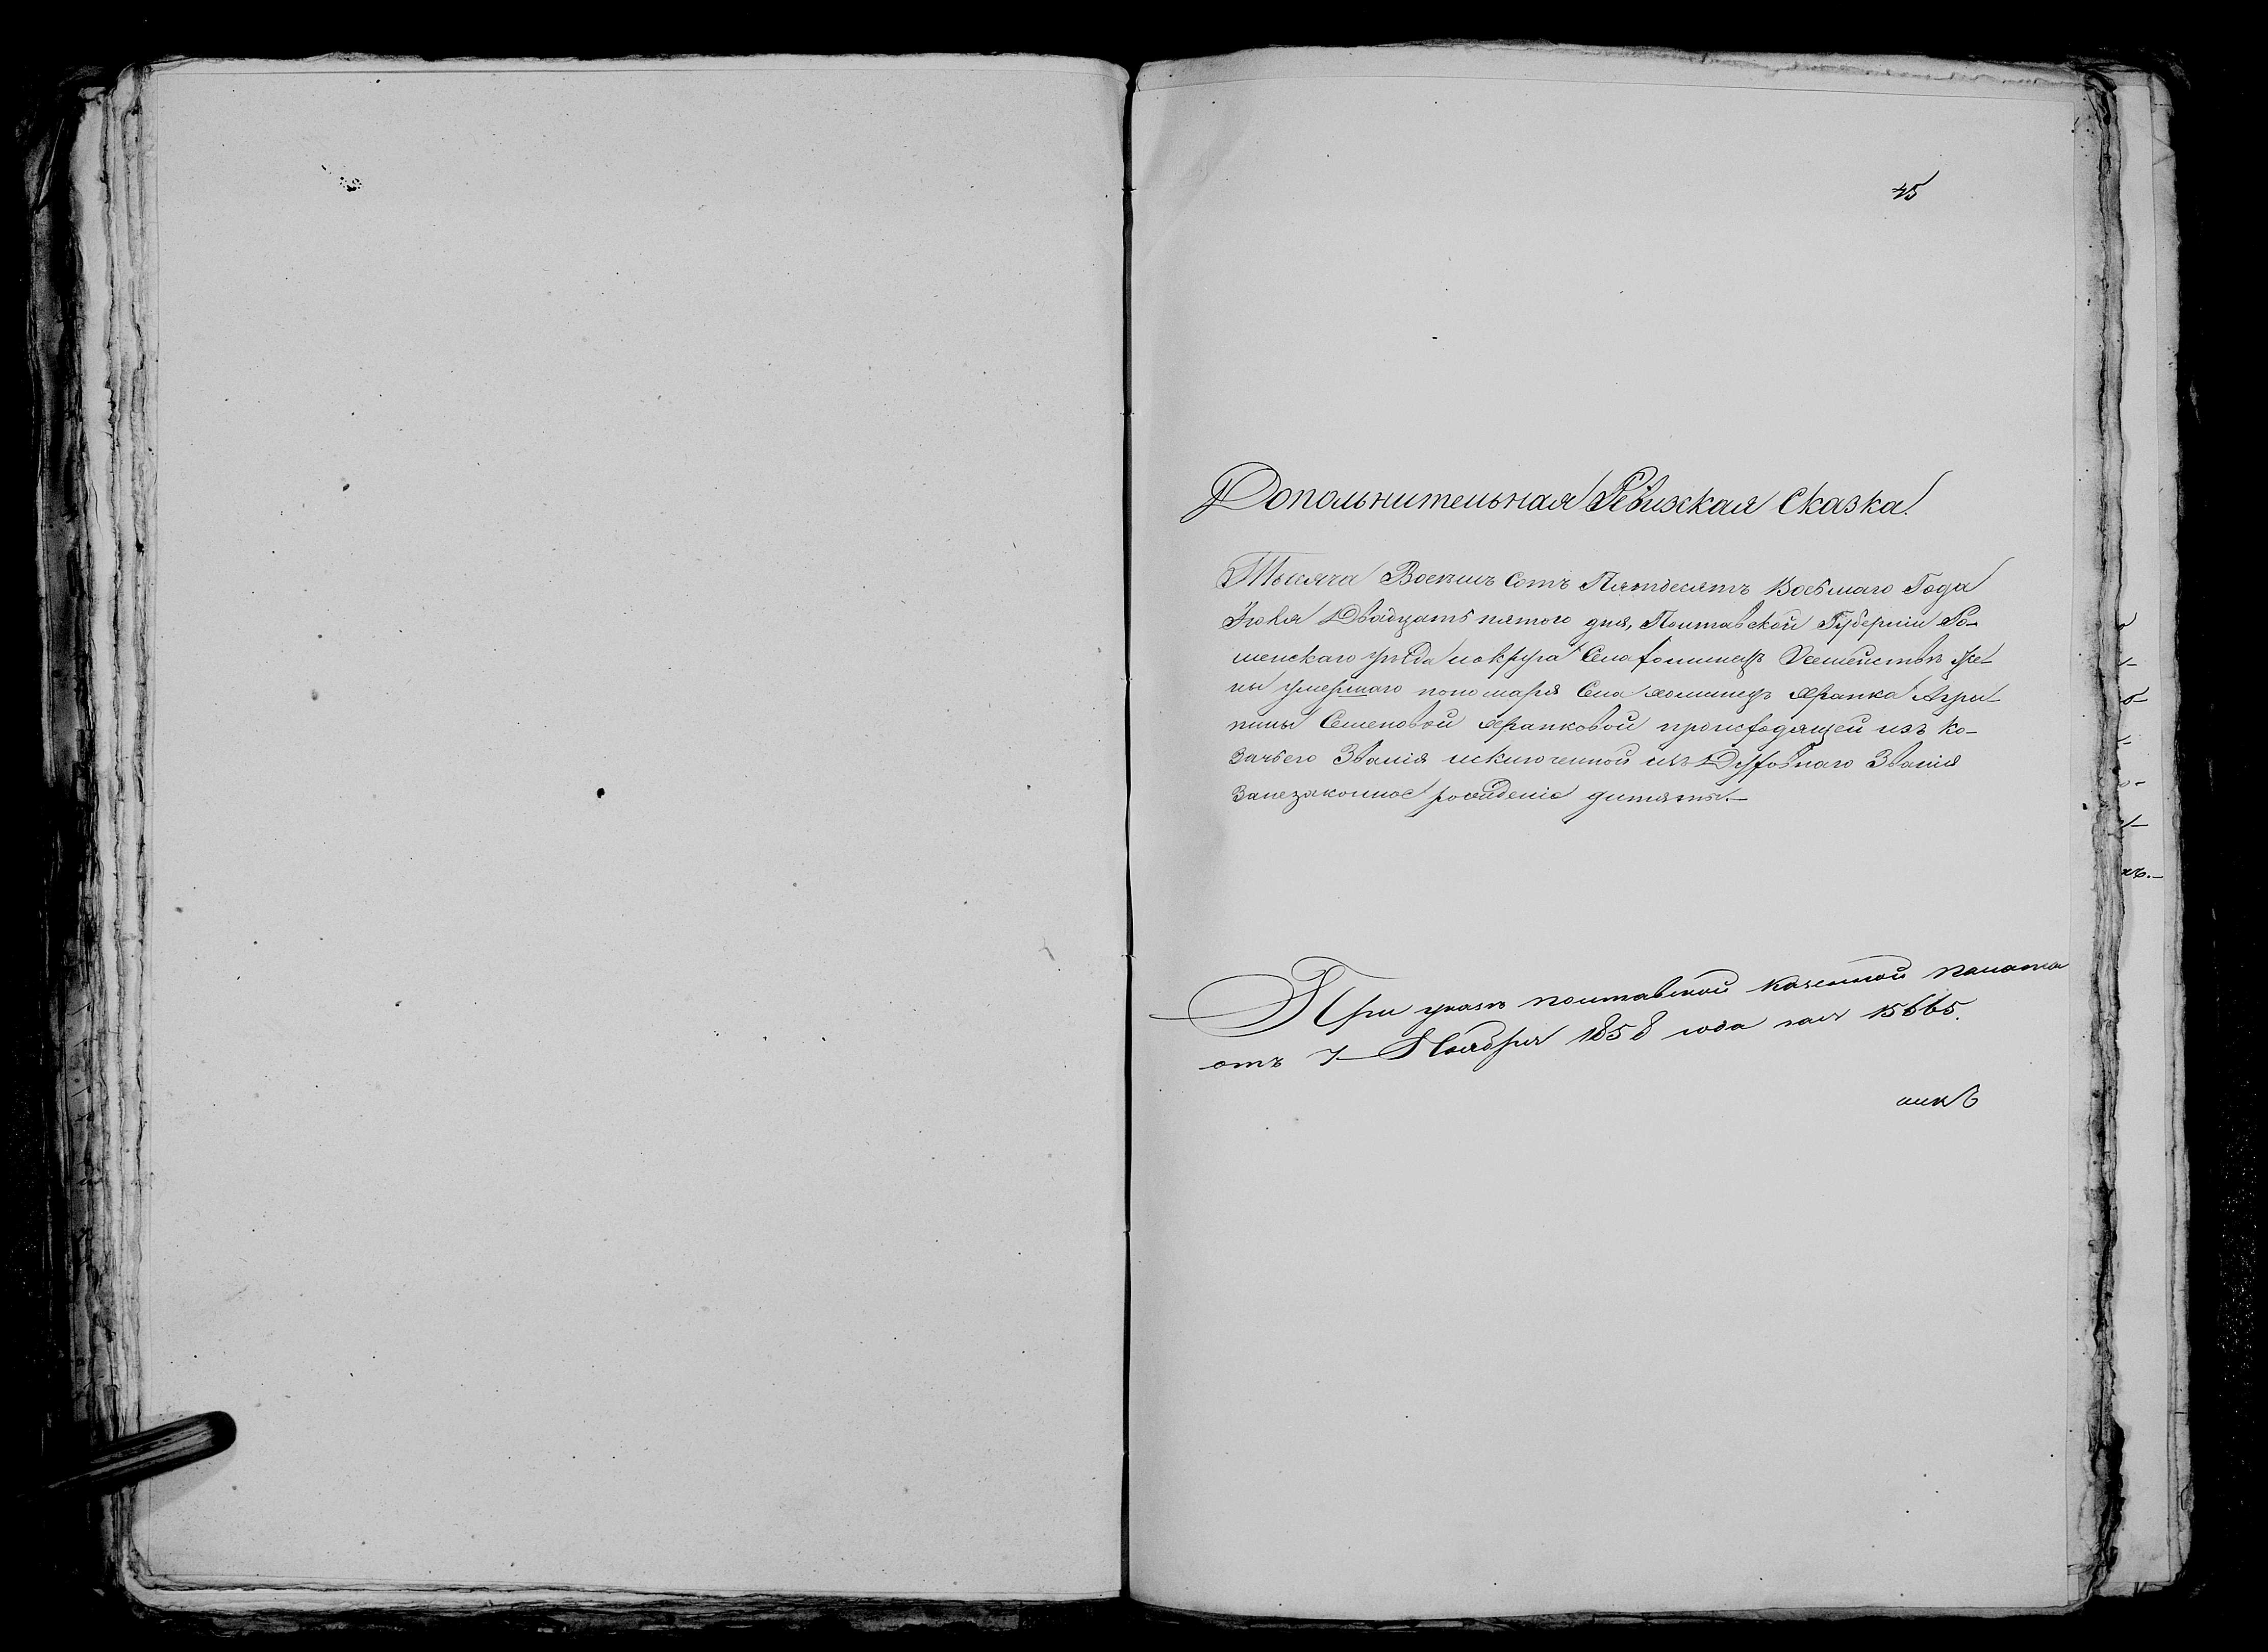 45
Дополнительная Ревизская Сказка.
Тысяча Восемь Сотъ Пятдесятъ Восьмаго Года
Июля Двадцать пятого дня, Полтавской Губерніи Ро-
менскаго уѣзда и округа Села Хоминецъ Осемействѣ Же-
ны умершаго пономаря Села Хоминецъ Храпка Агри-
пины Семеновой Храпковой происходящей изъ Ко-
зачьего Званія исключенной изъ Духовнаго Званія
Занезаконное рождение дитяты.—
При указѣ полтавской казенной палаты
отъ 7 Ноября 1858 года за № 15665.